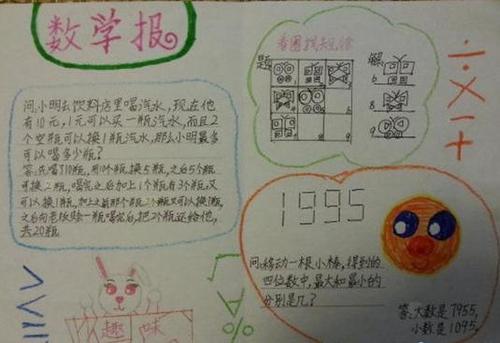 数学报
问小明去饮料店里喝汽水,现在他
有10元,1元可以买一瓶汽水,而且2
个空瓶可以换1瓶汽水,那么小明最多
可以喝多少瓶?
答:先喝了10瓶,用10个瓶换5瓶,之后5个瓶
可换2瓶,喝完之后加上1个瓶有3个瓶,又
可以换1瓶,加上之前那个瓶,2个瓶又可以换1瓶,
之后向老板赊一瓶喝完后,把2个瓶还给他,
共20瓶
看图找规律
题
解
6
8
9
6
8
9
÷
×
1995
问:移动一根小棒,得到的
四位数中,最大和最小的
分别是几?
答:大数是7955,
小数是1095.
√
%
趣味